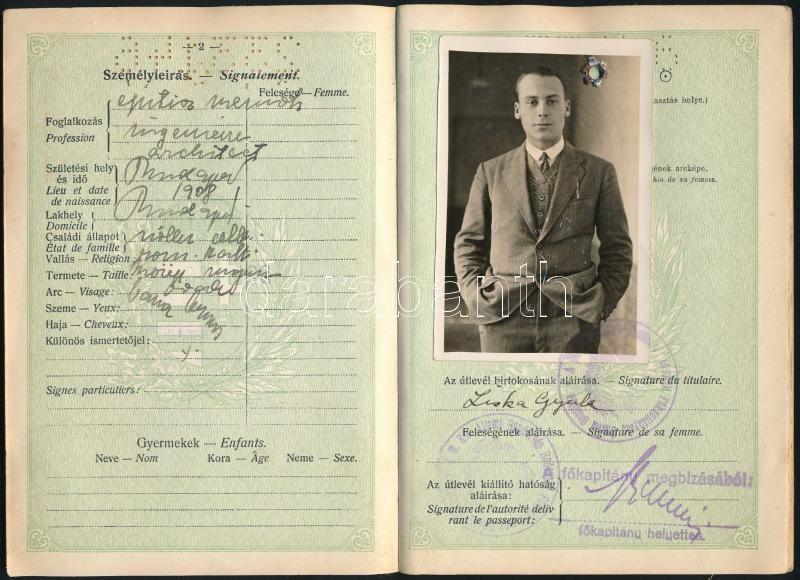 — 2 —
Személyleírás. — Signalement.
Felesége — Femme.
Foglalkozás
Profession
építész mérnök
ingenieur
architect
Születési hely
és idő
Lieu et date
de naissance
Budapest
1908
Lakhely
Domicile
Budapest
Családi állapot
État de famille
nőtlen celib.
Vallás — Religion:
rom. kath.
Termete — Taille:
Arc — Visage:
Szeme — Yeux:
barna
Haja — Cheveux:
Különös ismertetőjel:
Signes particuliers:
Gyermekek — Enfants.
Neve — Nom Kora — Âge Neme — Sexe.
asztás helye.)
gének arcképe.
hie de sa femme.
Az útlevél birtokosának aláírása. — Signature du titulaire.
Liska Gyula
Feleségének aláírása. — Signature de sa femme.
A főkapitány megbízásából:
Az útlevél kiállító hatóság
aláírása:
Signature de l'autorité déliv
rant le passeport:
főkapitány helyettes.
darabanth